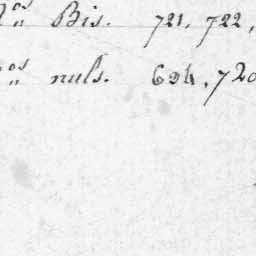 os Bis. 721, 722,
os nuls. 694, 720